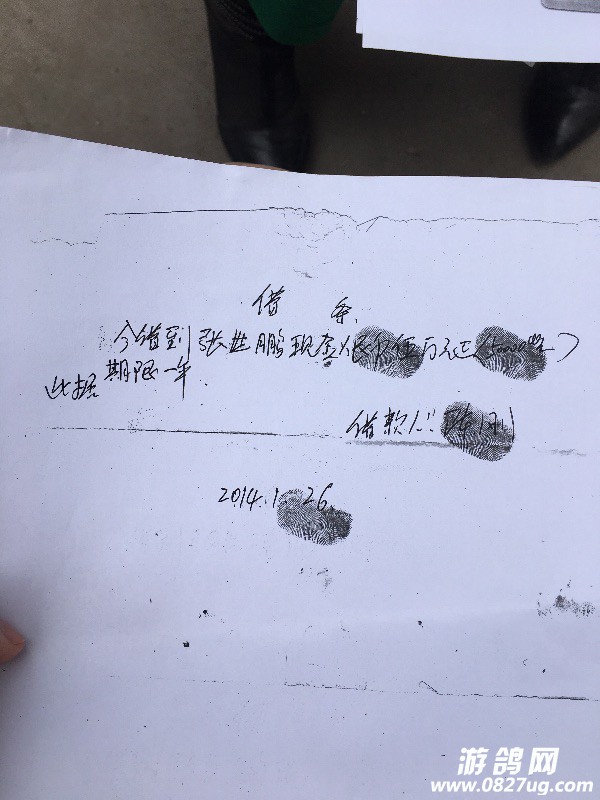 借 条
今借到张世鹏现金人民币伍万元正
期限一年
此据
借款人:
2014.1 26.
游鸽网
www.0827ug.com